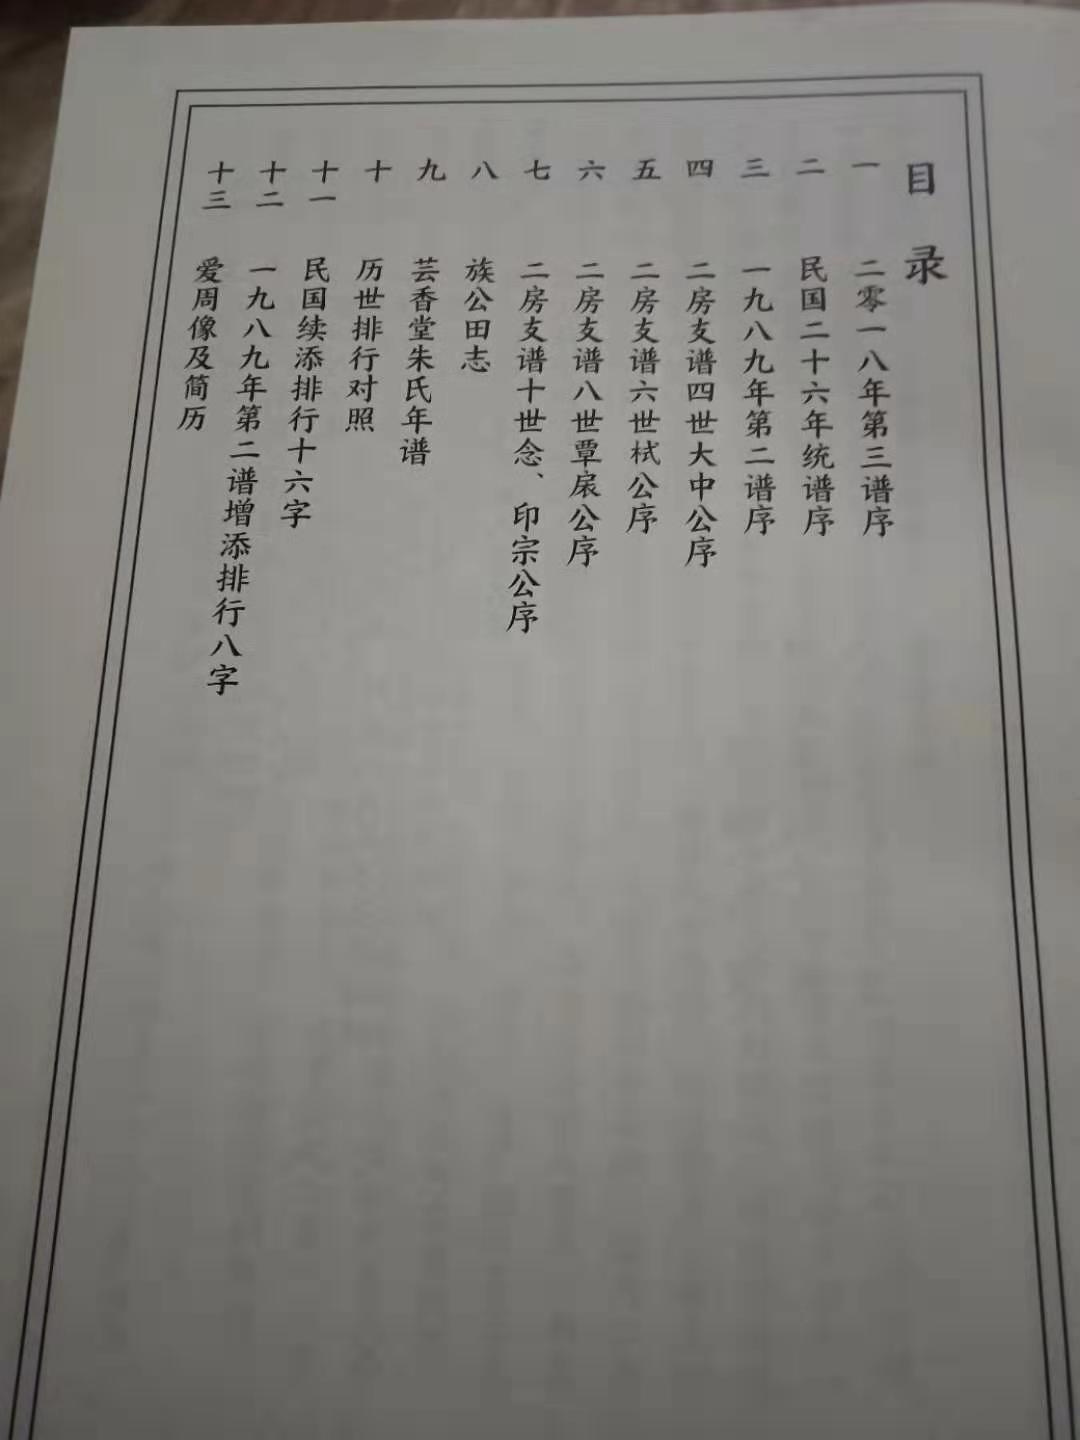 目录
一 二零一八年第三谱序
二 民国二十六年统谱序
三 一九八九年第二谱序
四 二房支谱四世大中公序
五 二房支谱六世栻公序
六 二房支谱八世覃扆公序
七 二房支谱十世念、印宗公序
八 族公田志
九 芸香堂朱氏年谱
十 历世排行对照
十一 民国续添排行十六字
十二 一九八九年第二谱增添排行八字
十三 爱周像及简历